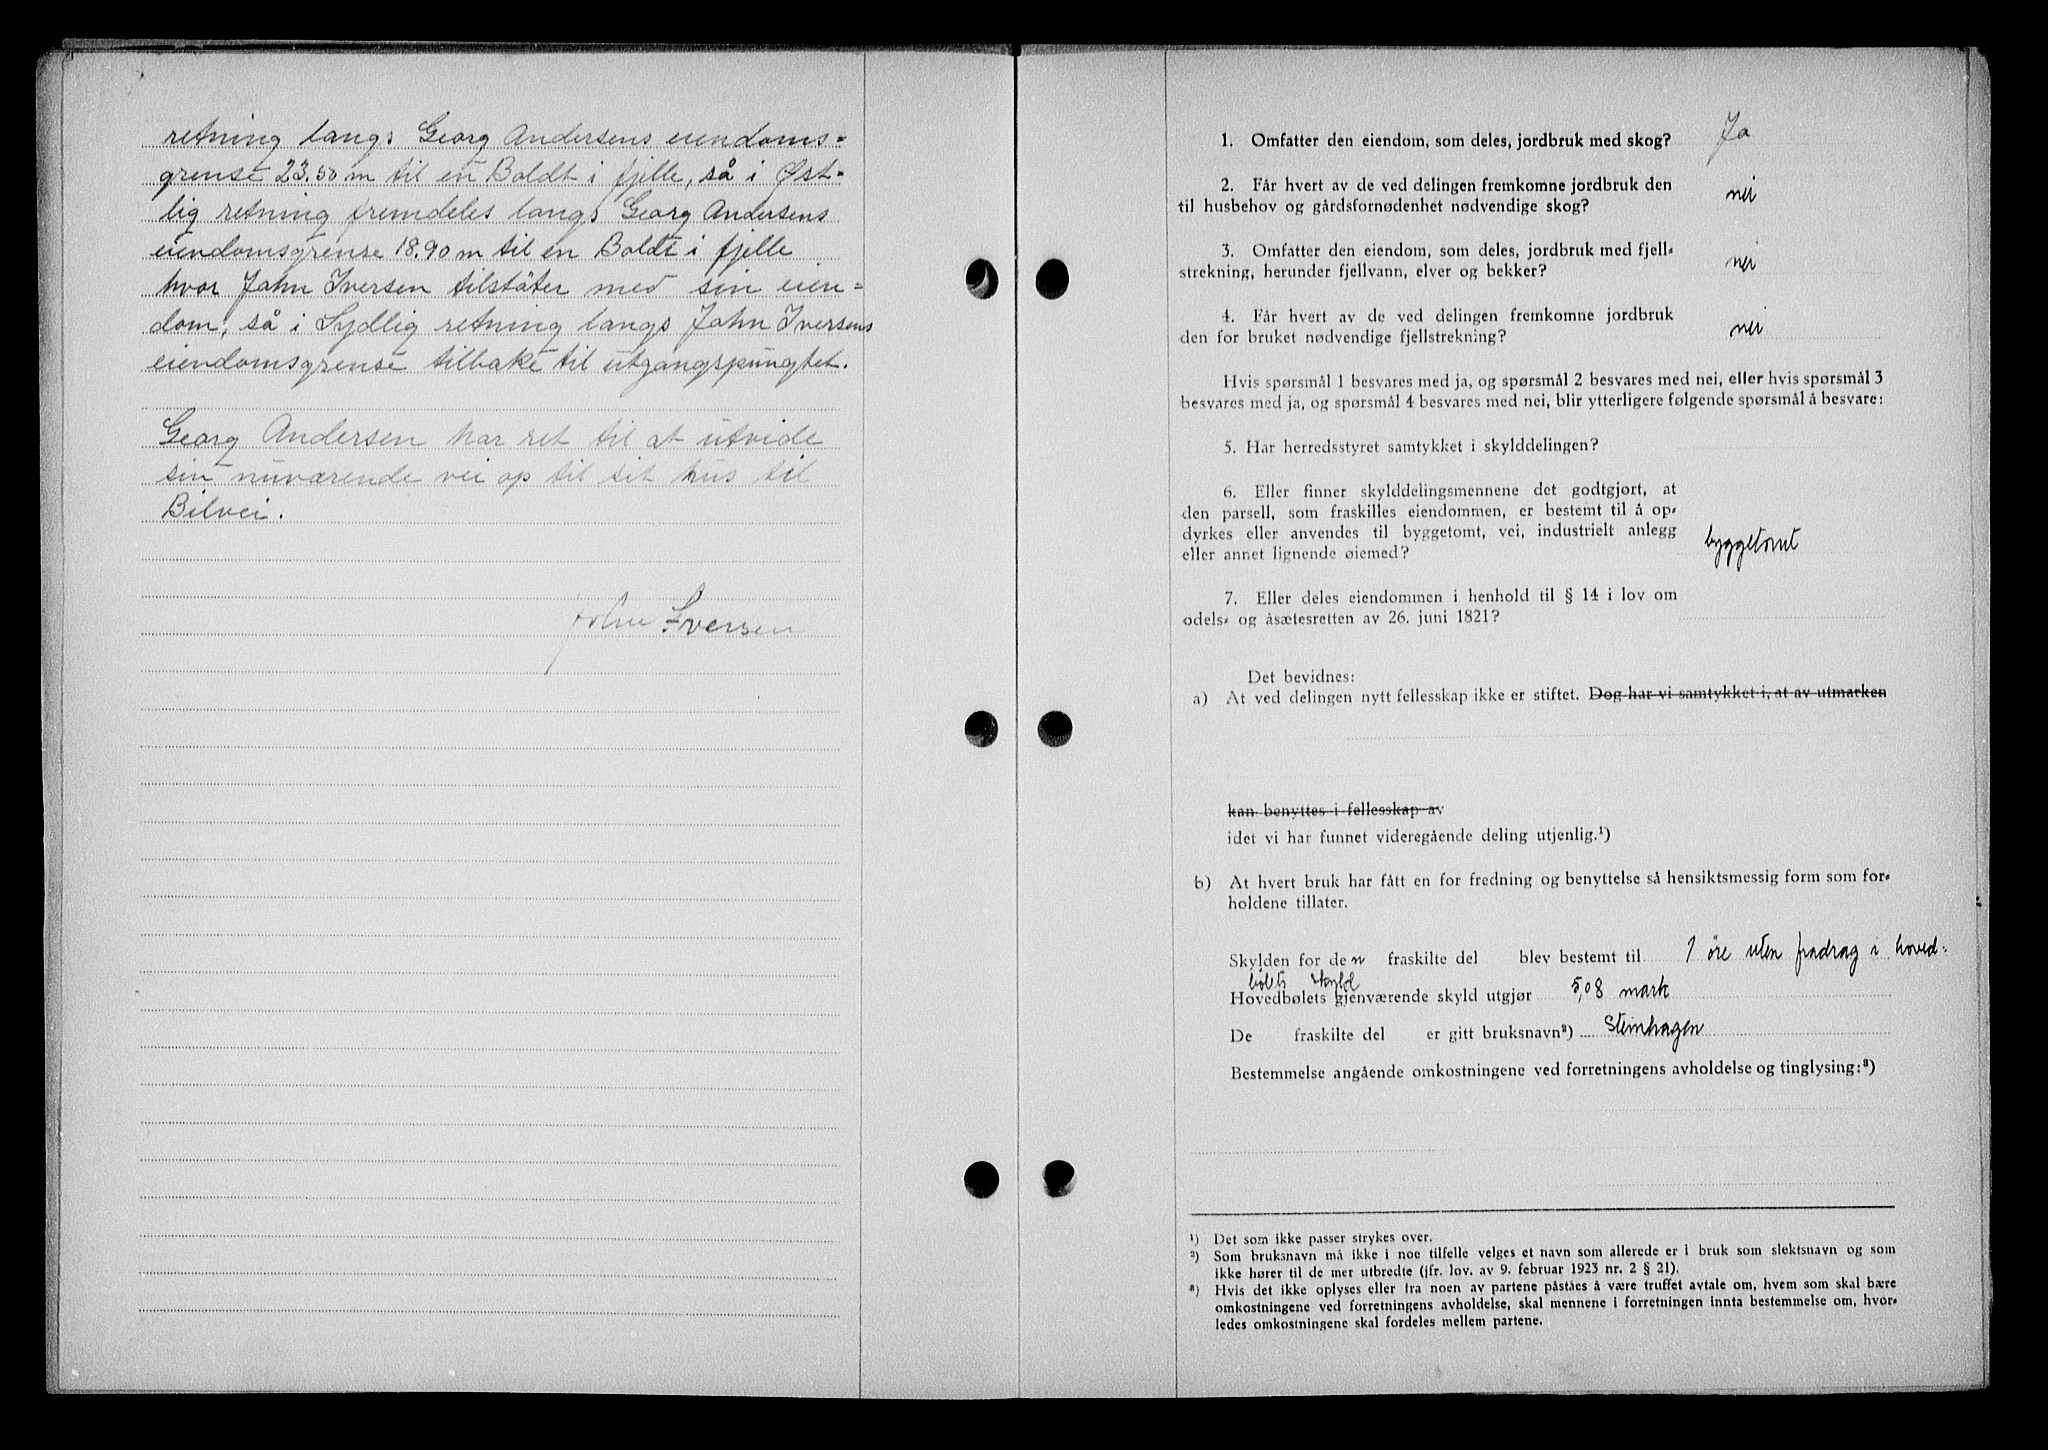 retning langs Georg Andersens eiendoms=
grense 23.50 m til en Boldt i fjelle, så i Øst-
lig retning fremdeles langs Georg Andersens
eiendomsgrense 18.90 m til en Boldt i fjelle
hvor John Iversen tilstöter med sin eien=
dom, så i Sydlig retning langs John Iversens
eiendomsgrense tilbake til utgangspungtet.
Georg Andersen har ret til at utvide
sin nuværende vei op til sit hus til
Bilvei.
John Iversen
1. Omfatter den eiendom, som deles, jordbruk med skog? Ja
2. Får hvert av de ved delingen fremkomne jordbruk den
til husbehov og gårdsfornødenhet nødvendige skog? nei
3. Omfatter den eiendom, som deles, jordbruk med fjell-
strekning, herunder fjellvann, elver og bekker? nei
4. Får hvert av de ved delingen fremkomne jordbruk
den for bruket nødvendige fjellstrekning? nei
Hvis spørsmål 1 besvares med ja, og spørsmål 2 besvares med nei, eller hvis spørsmål 3
besvares med ja, og spørsmål 4 besvares med nei, blir ytterligere følgende spørsmål å besvare:
5. Har herredsstyret samtykket i skylddelingen?
6. Eller finner skylddelingsmennene det godtgjort, at
den parsell, som fraskilles eiendommen, er bestemt til å op-
dyrkes eller anvendes til byggetomt, vei, industrielt anlegg
eller annet lignende øiemed? byggetomt
7. Eller deles eiendommen i henhold til § 14 i lov om
odels- og åsætesretten av 26. juni 1821?
Det bevidnes:
a) At ved delingen nytt fellesskap ikke er stiftet. Dog har vi samtykket i, at av utmarken
kan benyttes i fellesskap av
idet vi har funnet videregående deling utjenlig.¹)
b) At hvert bruk har fått en for fredning og benyttelse så hensiktsmessig form som for-
holdene tillater.
Skylden for den fraskilte del blev bestemt til 1 øre uten fradrag i hoved-
bølets skyld
Hovedbølets gjenværende skyld utgjør 5,08 mark
De fraskilte del er gitt bruksnavn²) Steinhagen
Bestemmelse angående omkostningene ved forretningens avholdelse og tinglysing:³)
¹) Det som ikke passer strykes over.
²) Som bruksnavn må ikke i noe tilfelle velges et navn som allerede er i bruk som slektsnavn og som
ikke hører til de mer utbredte (jfr. lov. av 9. februar 1923 nr. 2 § 21).
³) Hvis det ikke oplyses eller fra noen av partene påståes å være truffet avtale om, hvem som skal bære
omkostningene ved forretningens avholdelse, skal mennene i forretningen innta bestemmelse om, hvor-
ledes omkostningene skal fordeles mellem partene.